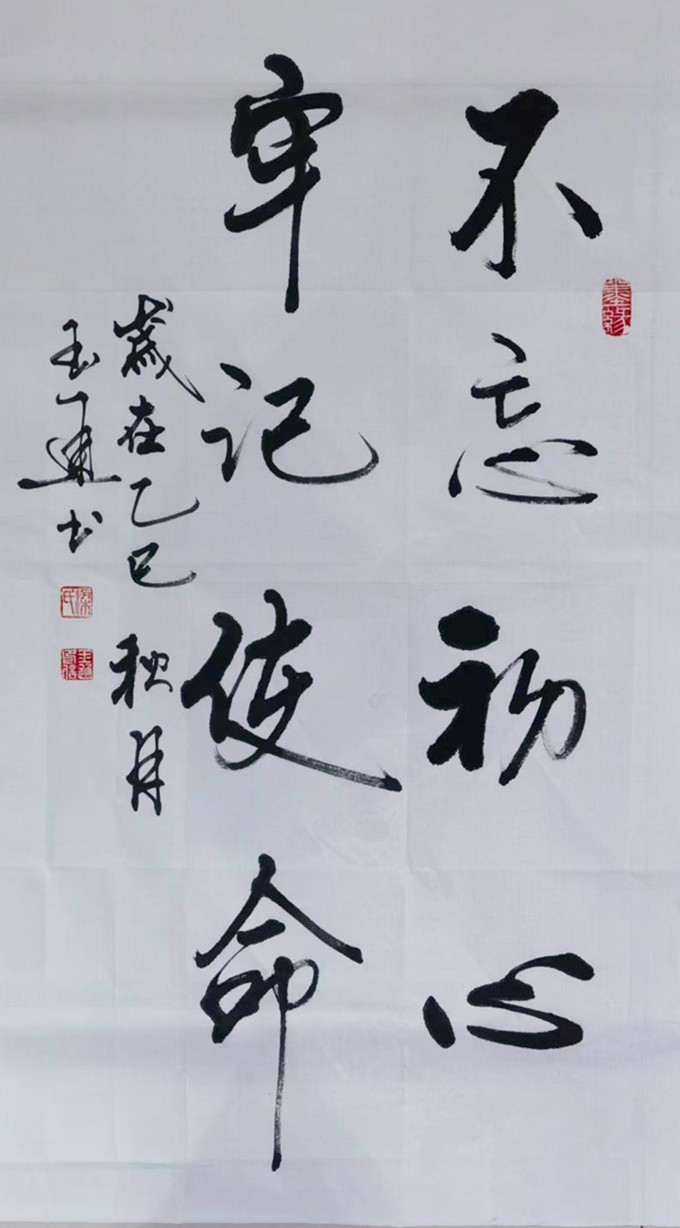 不忘初心
牢记使命
歲在乙巳秋月
玉通书